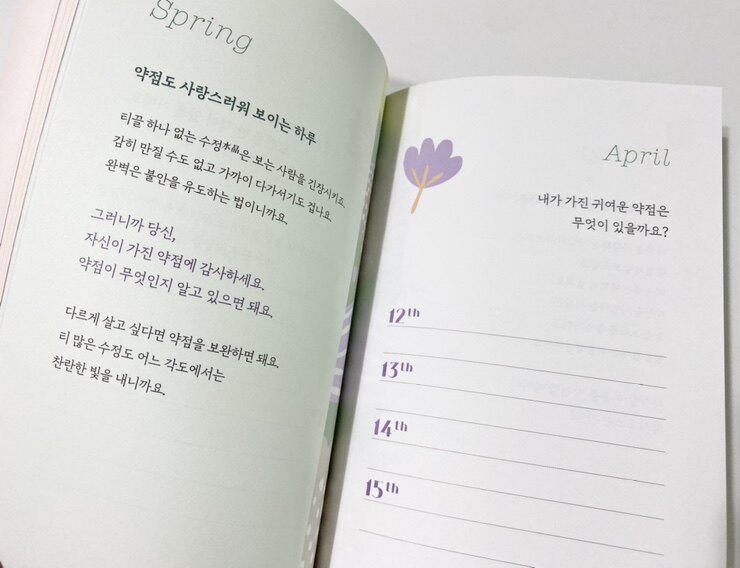 Spring
약점도 사랑스러워 보이는 하루
티끌 하나 없는 수정水晶은 보는 사람을 긴장시키죠.
감히 만질 수도 없고 가까이 다가서기도 겁나요.
완벽은 불안을 유도하는 법이니까요.
그러니까 당신,
자신이 가진 약점에 감사하세요.
약점이 무엇인지 알고 있으면 돼요.
다르게 살고 싶다면 약점을 보완하면 돼요.
티 많은 수정도 어느 각도에서는
찬란한 빛을 내니까요.
April
내가 가진 귀여운 약점은
무엇이 있을까요?
12th
13th
14th
15th